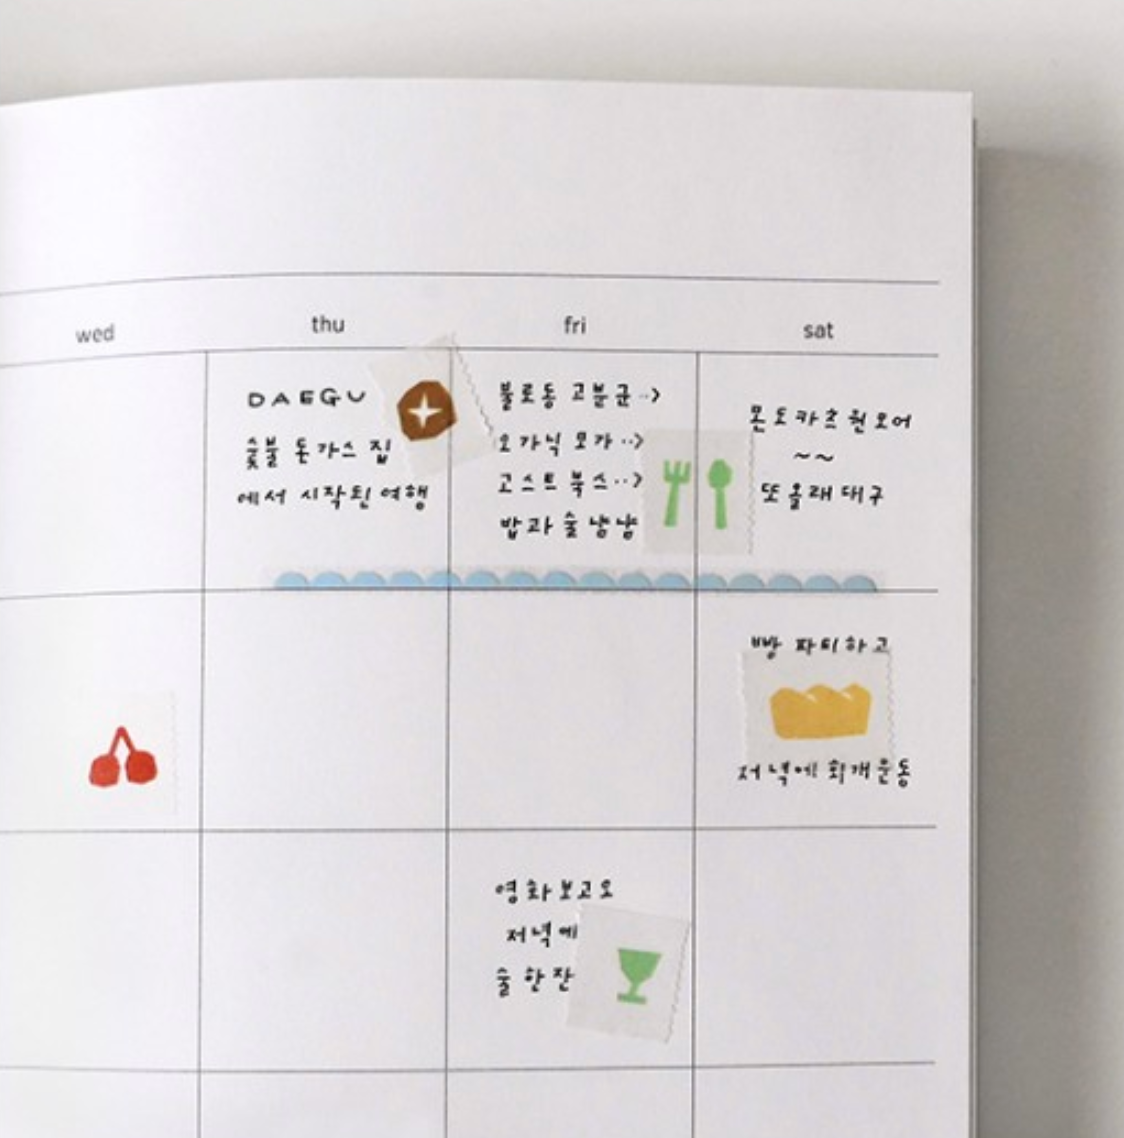 wed
thu
fri
sat
DAEGU
숯불 돈가스 집
에서 시작된 여행
불로동 고분군··>
오가닉 모가··>
고스트 북스··>
밥과 술 냠냠
몬도카츠 원모어
~~
또올래 대구
빵 파티하고
저녁에 회개운동
영화보고오
저녁에
술 한잔